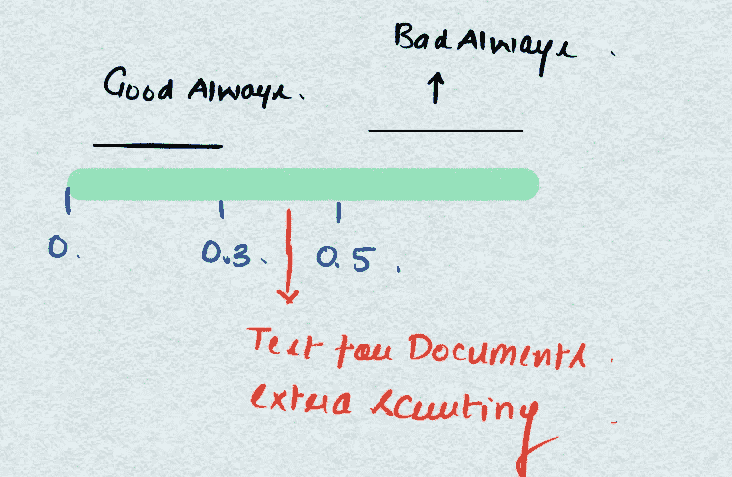 Bad Always.
Good Always.
0.
0.3.
0.5.
Test for Documents
extra scrutiny